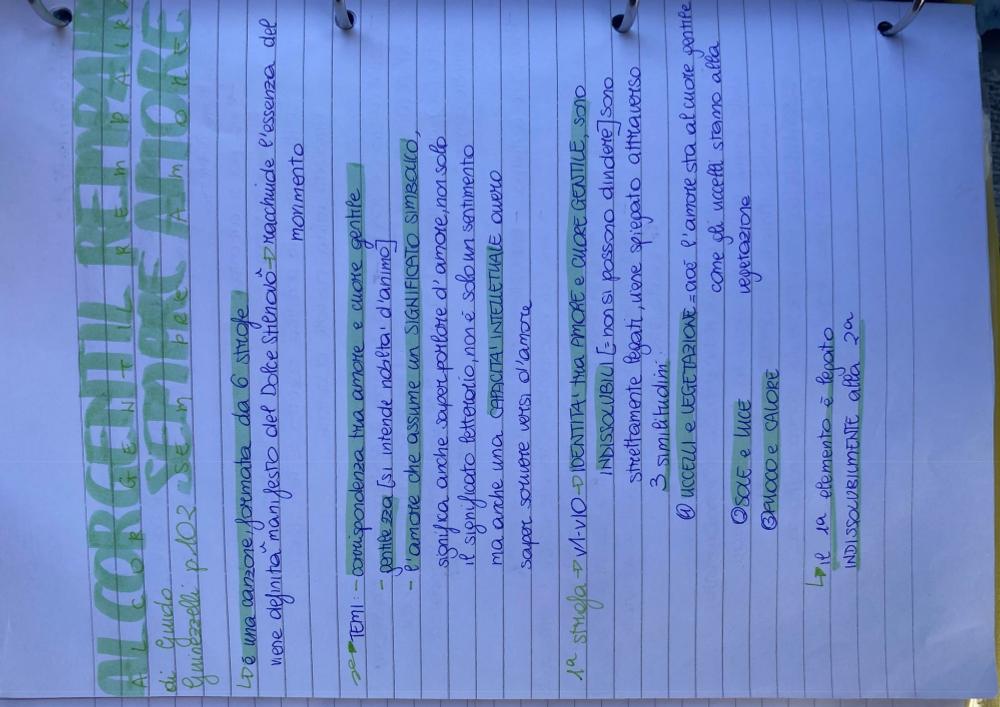 AL COR GENTIL REMPAIRA
AL COR GENTIL REMPAIRA
SEMPRE AMORE
di Guido SEMPRE AMORE
Guinizzelli p.102
↳ è una canzone, formata da 6 strofe
viene definita "manifesto del Dolce Stilnovo" → racchiude l'essenza del
movimento
TEMI: - corrispondenza tra amore e cuore gentile
- gentilezza [si intende nobiltà d'animo]
- l'amore che assume un SIGNIFICATO SIMBOLICO,
significa anche saper parlare d'amore, non solo
il significato letterario, non è solo un sentimento
ma anche una CAPACITA' INTELLETTUALE ovvero
saper scrivere versi d'amore
1ª strofa → v1-v10 → IDENTITA' tra AMORE e CUORE GENTILE, sono
INDISSOLUBILI [= non si possono dividere] sono
strettamente legati, viene spiegato attraverso
3 similitudini:
① UCCELLI e VEGETAZIONE = cioè l'amore sta al cuore gentile
come gli uccelli stanno alla
vegetazione
② SOLE e LUCE
③ FUOCO e CALORE
↳ il 1ª elemento è legato
INDISSOLUBILMENTE alla 2ª